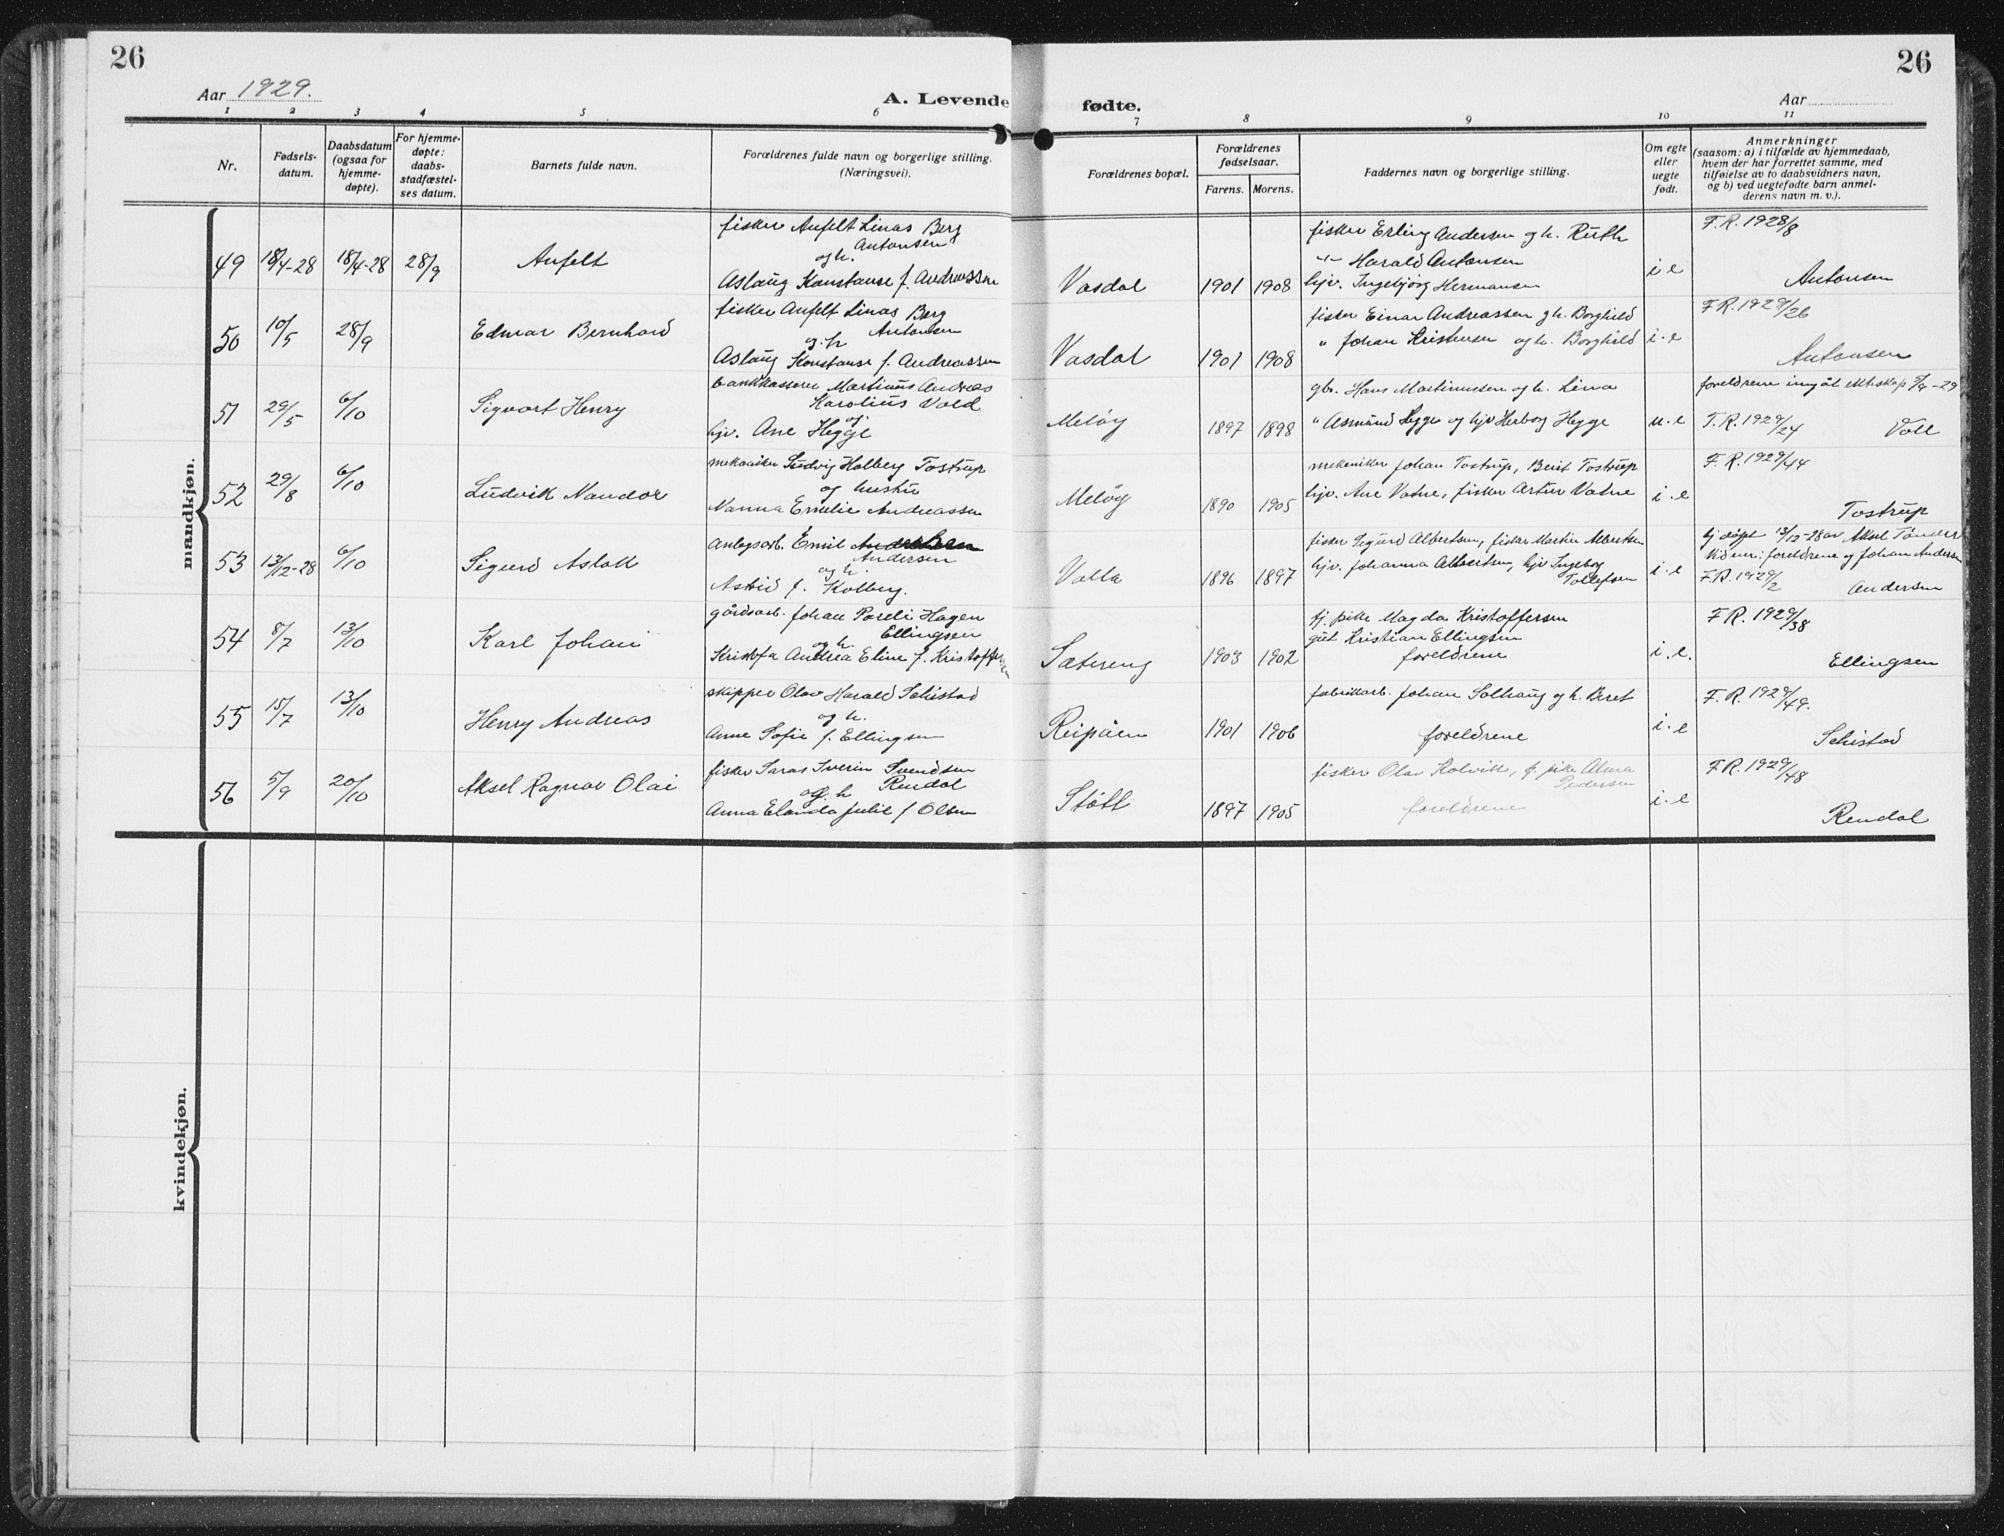 26
26
Aar 1929.
A. Levende fødte.
Aar
1 2 3 4 5 6 7 8 9 10 11
Nr.
Fødsels-
datum.
Daabsdatum
(ogsaa for
hjemme-
døpte).
For hjemme-
døpte:
daabs-
stadfæstel-
ses datum.
Barnets fulde navn.
Forældrenes fulde navn og borgerlige stilling.
(Næringsvei).
Forældrenes bopæl.
Forældrenes
fødselsaar.
Farens. Morens.
Faddernes navn og borgerlige stilling.
Om egte
eller
uegte
født.
Anmerkninger
(saasom: a) i tilfælde av hjemmedaab,
hvem der har forrettet samme, med
tilføielse av to daabsvidners navn,
og b) ved uegtefødte barn anmel-
derens navn m. v.).
mandkjøn.
49 18/4-28 18/4-28 28/9 Anfelt
fisker Anfelt Linas Berg
Antonsen
og h.
Aslaug Konstanse f. Andreassen
Vasdal 1901 1908
fisker Erling Andersen og h. Ruth
-"- Harald Antonsen
hjv. Ingebjørg Hermansen
i e
F.R. 1928/8
Antonsen
50 10/5 28/9 Edmar Bernhard
fisker Anfelt Linas Berg
Antonsen
og h
Aslaug Konstanse f. Andreassen
Vasdal 1901 1908
fisker Einar Andreassen og h. Borghild
" Johan Kristensen og h. Borghild
i. e
F.R. 1929/26
Antonsen
51 29/5 6/10 Sigvart Henry
bankkasserer Martinus Andreas
Karolius Vold
og
hjv. Ane Hegge
Meløy 1897 1898
gbr. Hans Martinussen og h. Lina
" Asmund Hegge og hjv Herborg Hegge
u. e
foreldrene inngåt ekteskap
F.R. 1929/24
52 29/8 6/10 Ludvik Nandor
mekaniker Ludvig Holberg Tostrup
og hustru
Nanna Emelie Andreassen
Meløy 1890 1905
mekaniker Johan Tostrup, Berit Tostrup
hjv. Ane Vatne, fisker Artur Vatne
i. e
F.R. 1929/44
Tostrup
53 13/12-28 6/10 Sigurd Aslak
anlegsarb. Emil
Andersen
og h.
Astrid f. Kolberg.
Valla 1896 1897
fisker Sigurd Albertsen, fisker Martin Albertsen
hjv. Johanna Albertsen, hjv Ingeborg
Tollefsen
i. e
hj døpt 13/12-28 av Aksel Tønder
Vidner: foreldrene og Johan Andersen
F.R. 1929/2
Andersen
54 8/7 13/10 Karl Johan
gårdsarb. Johan Pareli Hagen
Ellingsen
og h.
Kristofa Andrea Eline f. Kristoffersen
Sætereng 1903 1902
tj. pike Magda Kristoffersen
gut Kristian Ellingsen
foreldrene
i. e.
F.R. 1929/38
Ellingsen
55 15/7 13/10 Henry Andreas
skipper Olav Harald Schistad
og h.
Anne Sofie f. Ellingsen
Reipåen 1901 1906
fabrikkarb. Johan Solhaug og h. Beret
foreldrene
i. e
F.R. 1929/49.
Schistad
56 5/9 20/10 Aksel Ragnar Olai
fisker Saras Iverin Svendsen
Rendal
og h
Anna Elanda Julie f Olsen
Støtt 1897 1905
fisker Olav Kolvik, tj. pike Alma
Pedersen
foreldrene
i. e
F.R. 1929/48
Rendal
kvindekjøn.